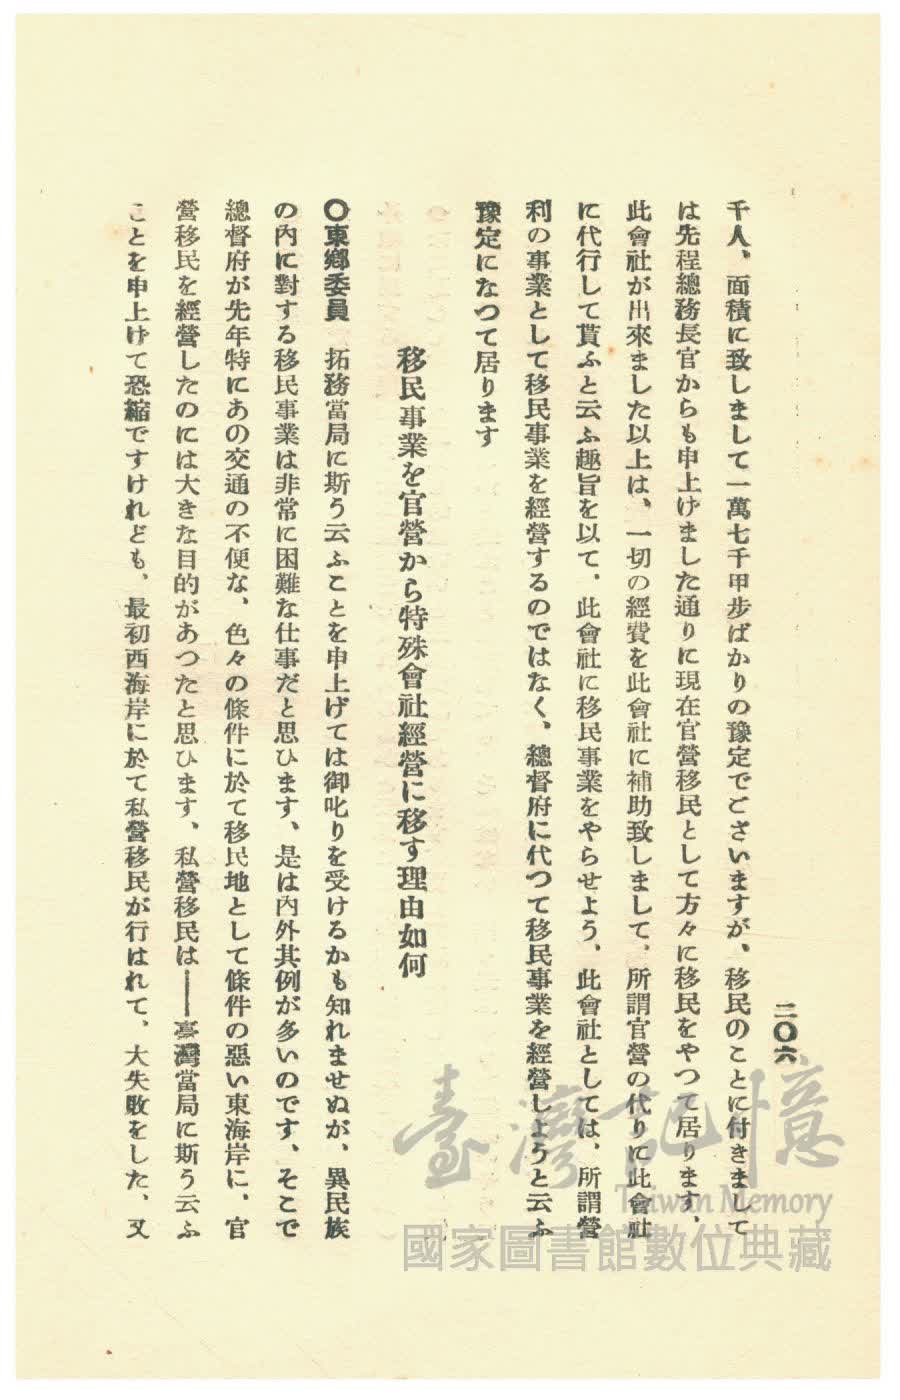 二〇六
千人、面積に致しまして一萬七千甲步ばかりの豫定でございますが、移民のことに付きまして
は先程總務長官からも申上げました通りに現在官營移民として方々に移民をやつて居ります、
此會社が出來ました以上は、一切の經費を此會社に補助致しまして、所謂官營の代りに此會社
に代行して貰ふと云ふ趣旨を以て、此會社に移民事業をやらせよう、此會社としては、所謂營
利の事業として移民事業を經營するのではなく、總督府に代つて移民事業を經營しようと云ふ
豫定になつて居ります
移民事業を官營から特殊會社經營に移す理由如何
〇東鄕委員　拓務當局に斯う云ふことを申上げては御叱りを受けるかも知れませぬが、異民族
の內に對する移民事業は非常に困難な仕事だと思ひます、是は內外其例が多いのです、そこで
總督府が先年特にあの交通の不便な、色々の條件に於て移民地として條件の惡い東海岸に、官
營移民を經營したのには大きな目的があつたと思ひます、私營移民は――臺灣當局に斯う云ふ
ことを申上げて恐縮ですけれども、最初西海岸に於て私營移民が行はれて、大失敗をした、又
臺灣記憶
Taiwan Memory
國家圖書館數位典藏